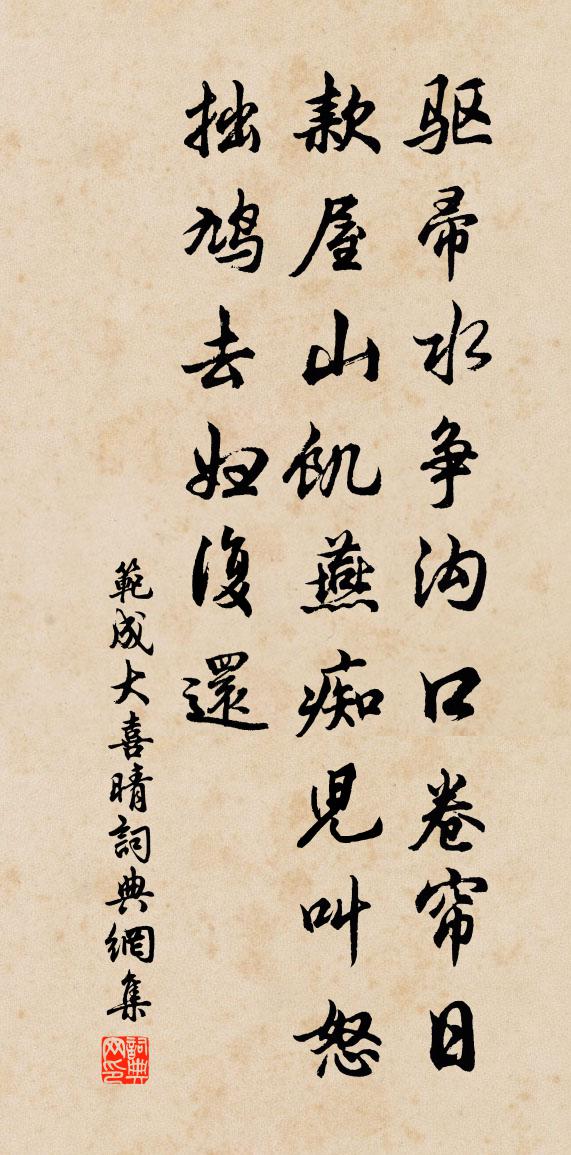 驱帚水争沟口卷帘日
款屋山饥燕痴児叫怒
拙鸠去妇復還
範成大喜晴詞典網集
詞典网印